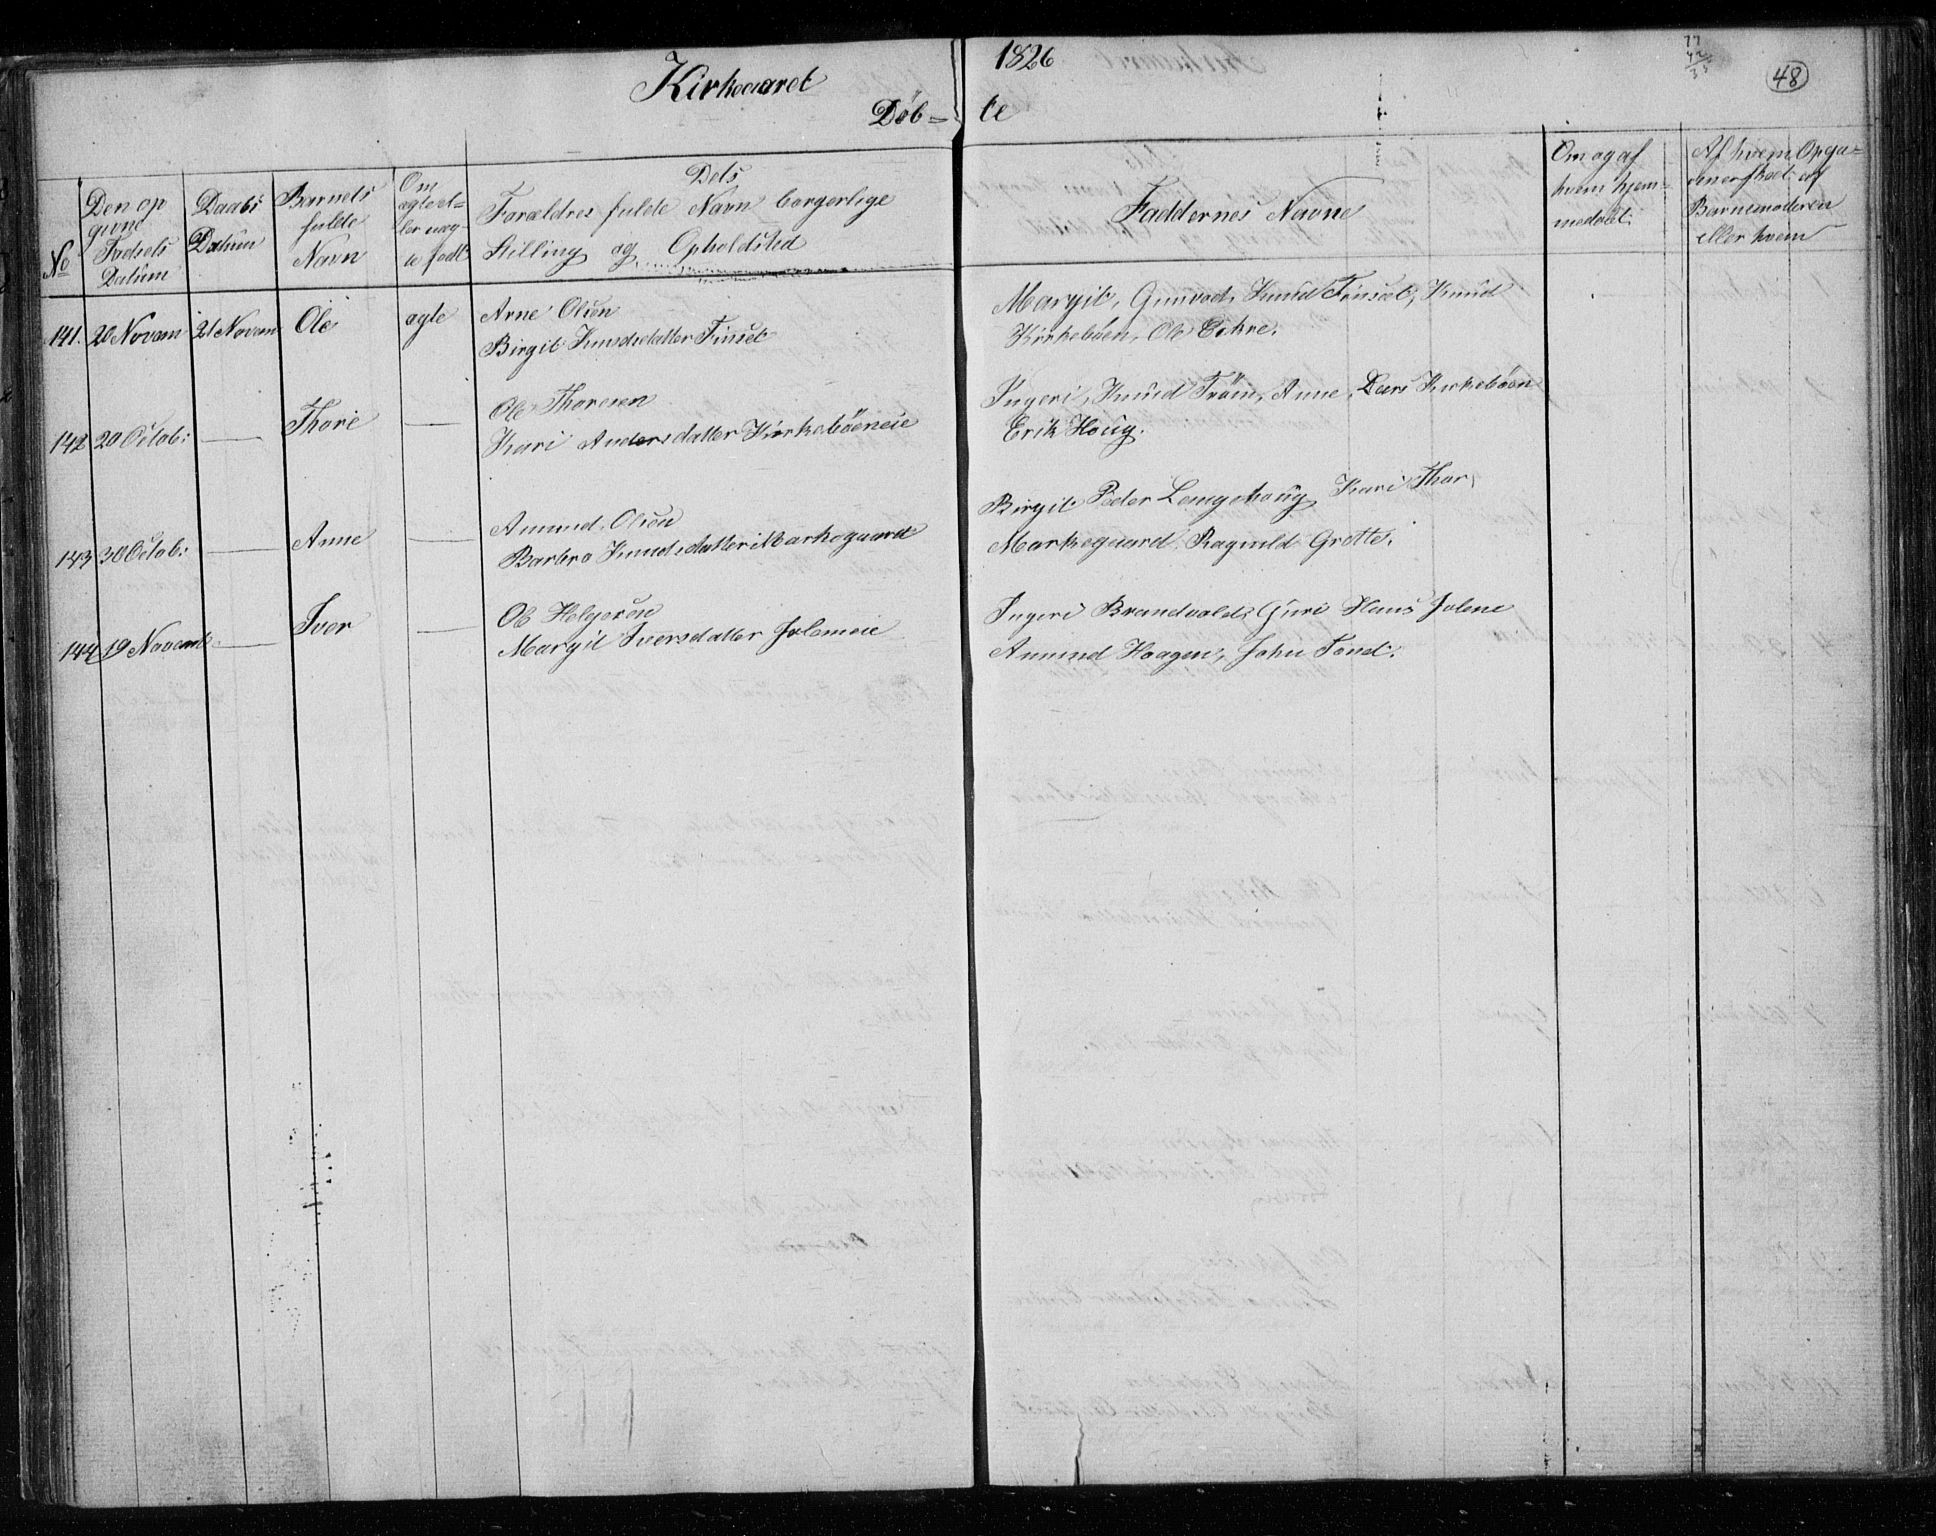 Kirkeaaret 1826
48
Döb= te
No
Den op
givne
Fødsels
Datum
Daabs
Datum
Barnets
fulde
Navn
Om
ægte el=
ler uæg-
te født
Dets
Forældres fulde Navn borgerlige
Stilling og Opholdsted
Faddernes Navne
Om og af
hvem hjem=
medøbt
Af hvem Opga=
ven er skeet: af
Barnemoderen
eller hvem
141. 20 Novem 21 Novem Ole ægte Arne Olsen
Birgit Knudsdatter Finset
Margit, Gunvod, Knud Finset, Knud
Kirkebøen, Ole
142 20 Octob: Thore Ole Thoresen
Kari Andersdatter Kirkebøeneie
Ingeri, Knud Trøim, Anne, Lars Kirkebøen
Erik Houg.
143 30 Octob: Anne Amund Olsen
Barbro Knudsdatter Markegaard
Birgit Peder Kari Thor
Markegaard Ragnild Grotte.
144 19 Novemb Iver Ole Helgesen
Margit Iversdatter
Ingeri Brandvold, Guri Hans
Amund Haagen, John